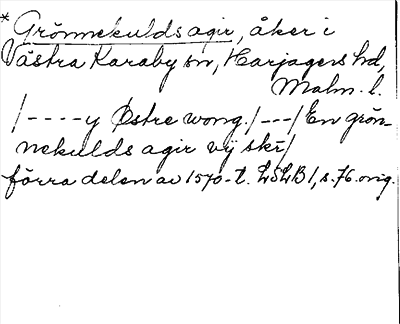 * Grönnekulds agir, åker i
Västra Karaby sn, Harjagers hd,
Malm. l.
/----y Østre wong./---/En grön-
nekulds agir vÿ skr/
förra delen av 1570-t. LSLB I, s. 76. orig.